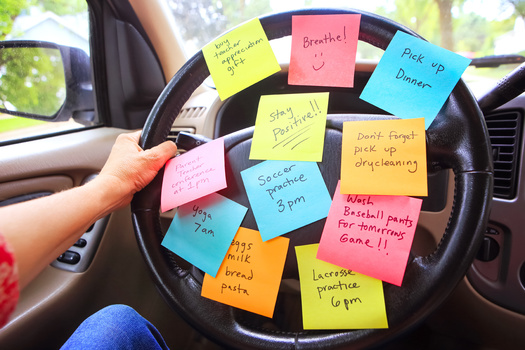 buy
teacher
appreciation
gift
Breathe!
Pick up
Dinner
Stay
Positive!!
Don't forget
pick up
drycleaning
Parent
Teacher
conference
at 1 pm
Soccer
practice
3pm
Wash
Baseball pants
For tomorrows
Game!!
Yoga
7am
eggs
milk
bread
pasta
Lacrosse
practice
6pm